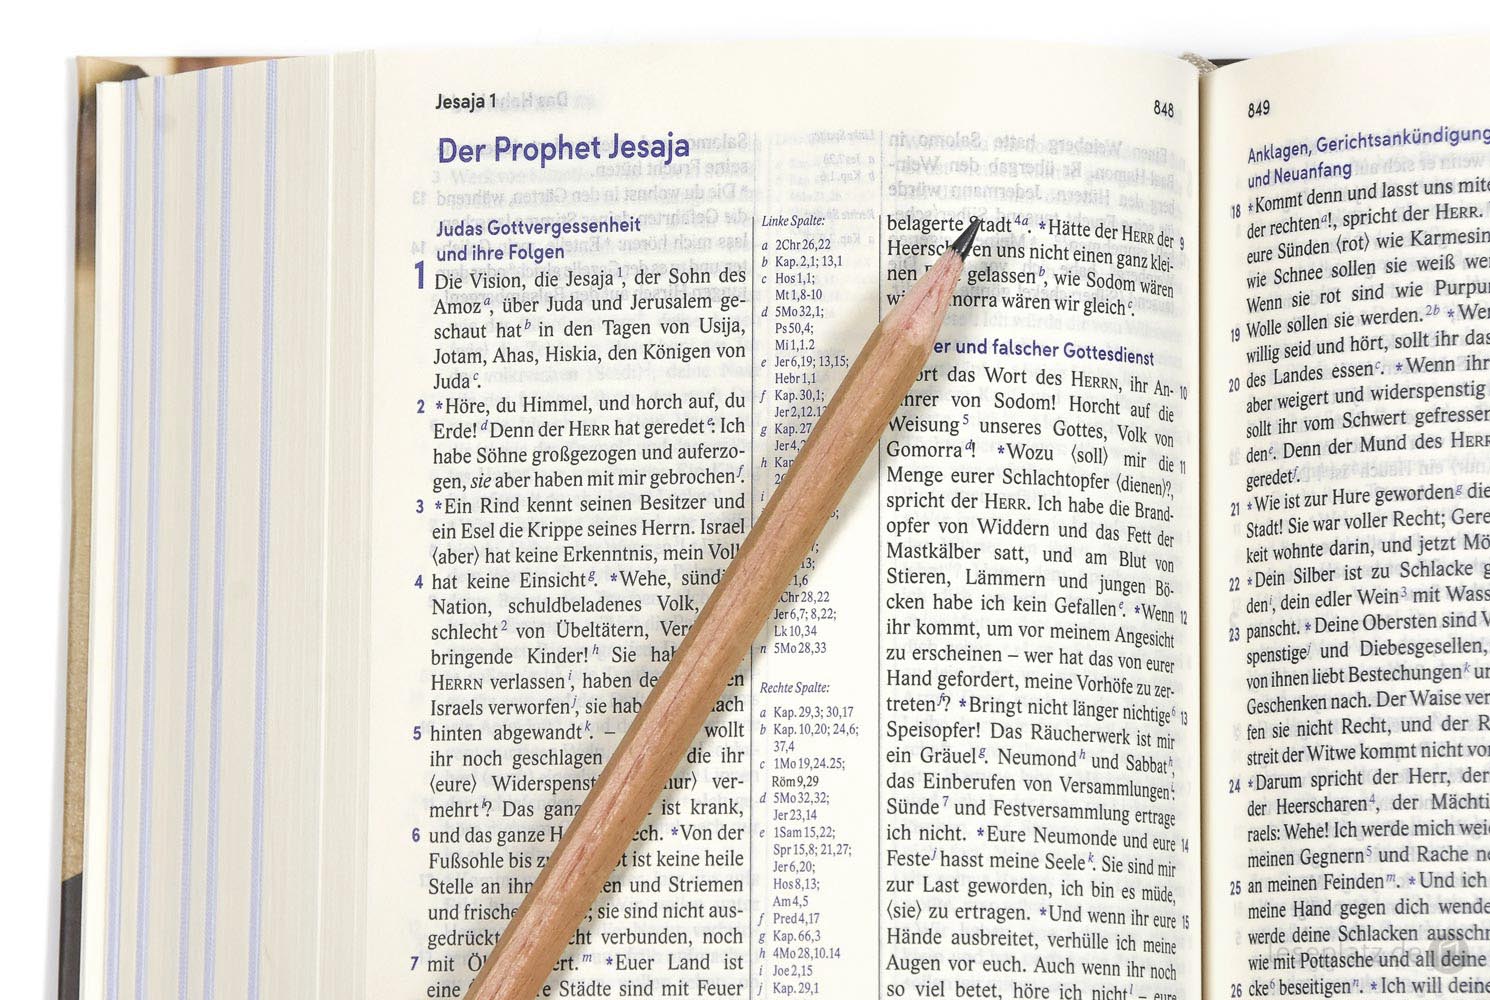 Jesaja 1
848
Der Prophet Jesaja
Judas Gottvergessenheit
und ihre Folgen
1 Die Vision, die Jesaja¹, der Sohn des
Amozᵃ, über Juda und Jerusalem ge-
schaut hatᵇ in den Tagen von Usija,
Jotam, Ahas, Hiskia, den Königen von
Judaᶜ.
2 *Höre, du Himmel, und horch auf, du
Erde!ᵈ Denn der HERR hat geredetᵉ: Ich
habe Söhne großgezogen und auferzo-
gen, sie aber haben mit mir gebrochenᶠ.
3 *Ein Rind kennt seinen Besitzer und
ein Esel die Krippe seines Herrn. Israel
⟨aber⟩ hat keine Erkenntnis, mein Volk
4 hat keine Einsichtᵍ. *Wehe,
Nation, schuldbeladenes Volk,
schlecht² von Übeltätern,
bringende Kinder!ʰ Sie
HERRN verlassenⁱ, haben
Israels verworfenʲ, sie
5 hinten abgewandtᵏ. – wollt
ihr noch geschlagen die ihr
⟨eure⟩ ver-
mehrtᵏ? Das ist krank,
6 und das ganze *Von der
Fußsohle bis ist keine heile
Stelle an und Striemen
und frische ; sie sind nicht aus-
gedrückt verbunden, noch
7 mit ᵐ *Euer Land ist
eine Städte sind mit Feuer
Linke Spalte:
a 2Chr 26,22
b Kap. 2,1; 13,1
c Hos 1,1;
Mt 1,8-10
d 5Mo 32,1;
Ps 50,4;
Mi 1,1.2
e Jer 6,19; 13,15;
Hebr 1,1
f Kap. 30,1;
Jer 2,12.13
g Kap. 27
Jer 4,
h Kap
i
13;
1,6
Chr 28,22
Jer 6,7; 8,22;
Lk 10,34
n 5Mo 28,33
Rechte Spalte:
a Kap. 29,3; 30,17
b Kap. 10,20; 24,6;
37,4
c 1Mo 19,24.25;
Röm 9,29
d 5Mo 32,32;
Jer 23,14
e 1Sam 15,22;
Spr 15,8; 21,27;
Jer 6,20;
Hos 8,13;
Am 4,5
f Pred 4,17
g Kap. 66,3
h 4Mo 28,10.14
i Joe 2,15
j Kap. 29,1
belagerte Stadt⁴ᵃ. *Hätte der HERR der 9
Heerscharen uns nicht einen ganz klei-
nen gelassenᵇ, wie Sodom wären
wir, Gomorra wären wir gleichᶜ.
er und falscher Gottesdienst
Hört das Wort des HERRN, ihr An- 10
führer von Sodom! Horcht auf die
Weisung⁵ unseres Gottes, Volk von
Gomorraᵈ! *Wozu ⟨soll⟩ mir die 11
Menge eurer Schlachtopfer ⟨dienen⟩?,
spricht der HERR. Ich habe die Brand-
opfer von Widdern und das Fett der
Mastkälber satt, und am Blut von
Stieren, Lämmern und jungen Bö-
cken habe ich kein Gefallenᵉ. *Wenn 12
ihr kommt, um vor meinem Angesicht
zu erscheinen – wer hat das von eurer
Hand gefordert, meine Vorhöfe zu zer-
tretenᶠ? *Bringt nicht länger nichtige⁶ 13
Speisopfer! Das Räucherwerk ist mir
ein Gräuelᵍ. Neumondʰ und Sabbat,
das Einberufen von Versammlungenⁱ:
Sünde⁷ und Festversammlung ertrage
ich nicht. *Eure Neumonde und eure 14
Festeʲ hasst meine Seeleᵏ. Sie sind mir
zur Last geworden, ich bin es müde,
⟨sie⟩ zu ertragen. *Und wenn ihr eure 15
Hände ausbreitet, verhülle ich meine
Augen vor euch. Auch wenn ihr noch
so viel betet, höre ich nichtˡ – eure
849
Anklagen, Gerichtsankündigung
und Neuanfang
18 *Kommt denn und lasst uns mite
der rechtenᵃ!, spricht der HERR.
eure Sünden ⟨rot⟩ wie Karmesin
wie Schnee sollen sie weiß we
Wenn sie rot sind wie Purpu
19 Wolle sollen sie werden.²ᵇ *We
willig seid und hört, sollt ihr das
20 des Landes essenᶜ. *Wenn ihr
aber weigert und widerspenstig
sollt ihr vom Schwert gefresser
denᵉ. Denn der Mund des HERR
geredetᶠ.
21 *Wie ist zur Hure gewordenᵍ die
Stadt! Sie war voller Recht; Gere
keit wohnte darin, und jetzt Mö
22 *Dein Silber ist zu Schlacke g
denⁱ, dein edler Wein³ mit Wass
23 panscht. *Deine Obersten sind W
spenstigeʲ und Diebesgesellen,
von ihnen liebt Bestechungenᵏ un
Geschenken nach. Der Waise ver
fen sie nicht Recht, und der R
streit der Witwe kommt nicht vor
24 *Darum spricht der Herr, der
der Heerscharen⁴, der Mächti
raels: Wehe! Ich werde mich weid
meinen Gegnern⁵ und Rache ne
25 an meinen Feindenᵐ. *Und ich
meine Hand gegen dich wende
werde deine Schlacken ausschm
wie mit Pottasche und all deine
26 cke⁶ beseitigenⁿ. *Ich will deine
leseplatz.de